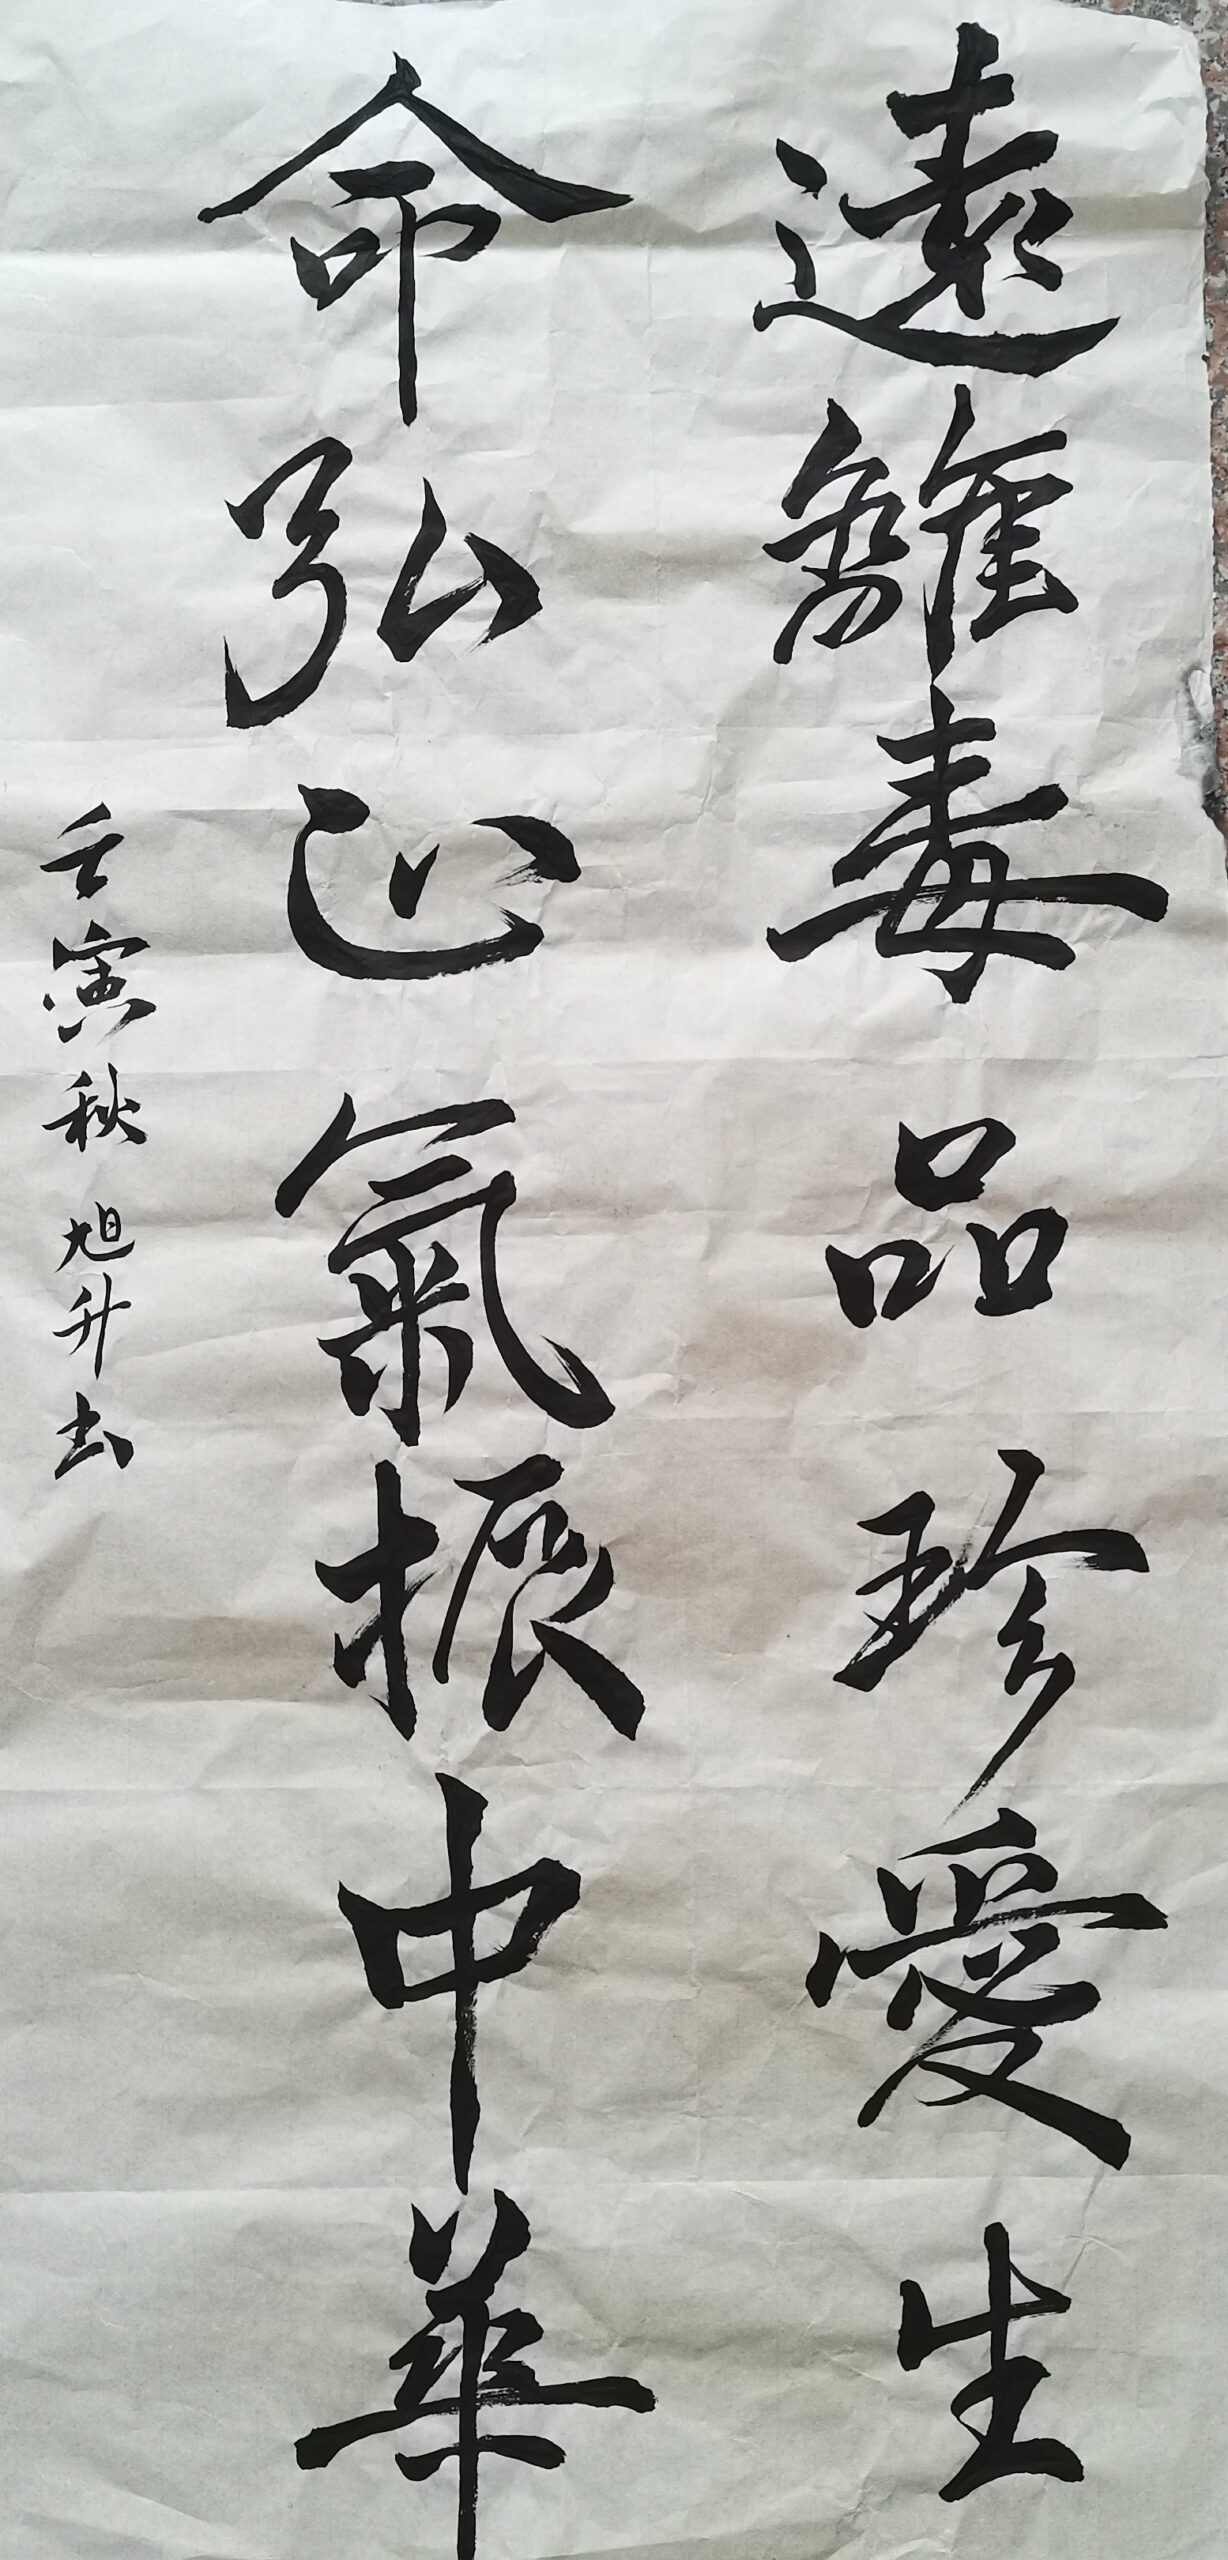 遠離毒品珍愛生
命弘正氣振中華
壬寅秋旭升书